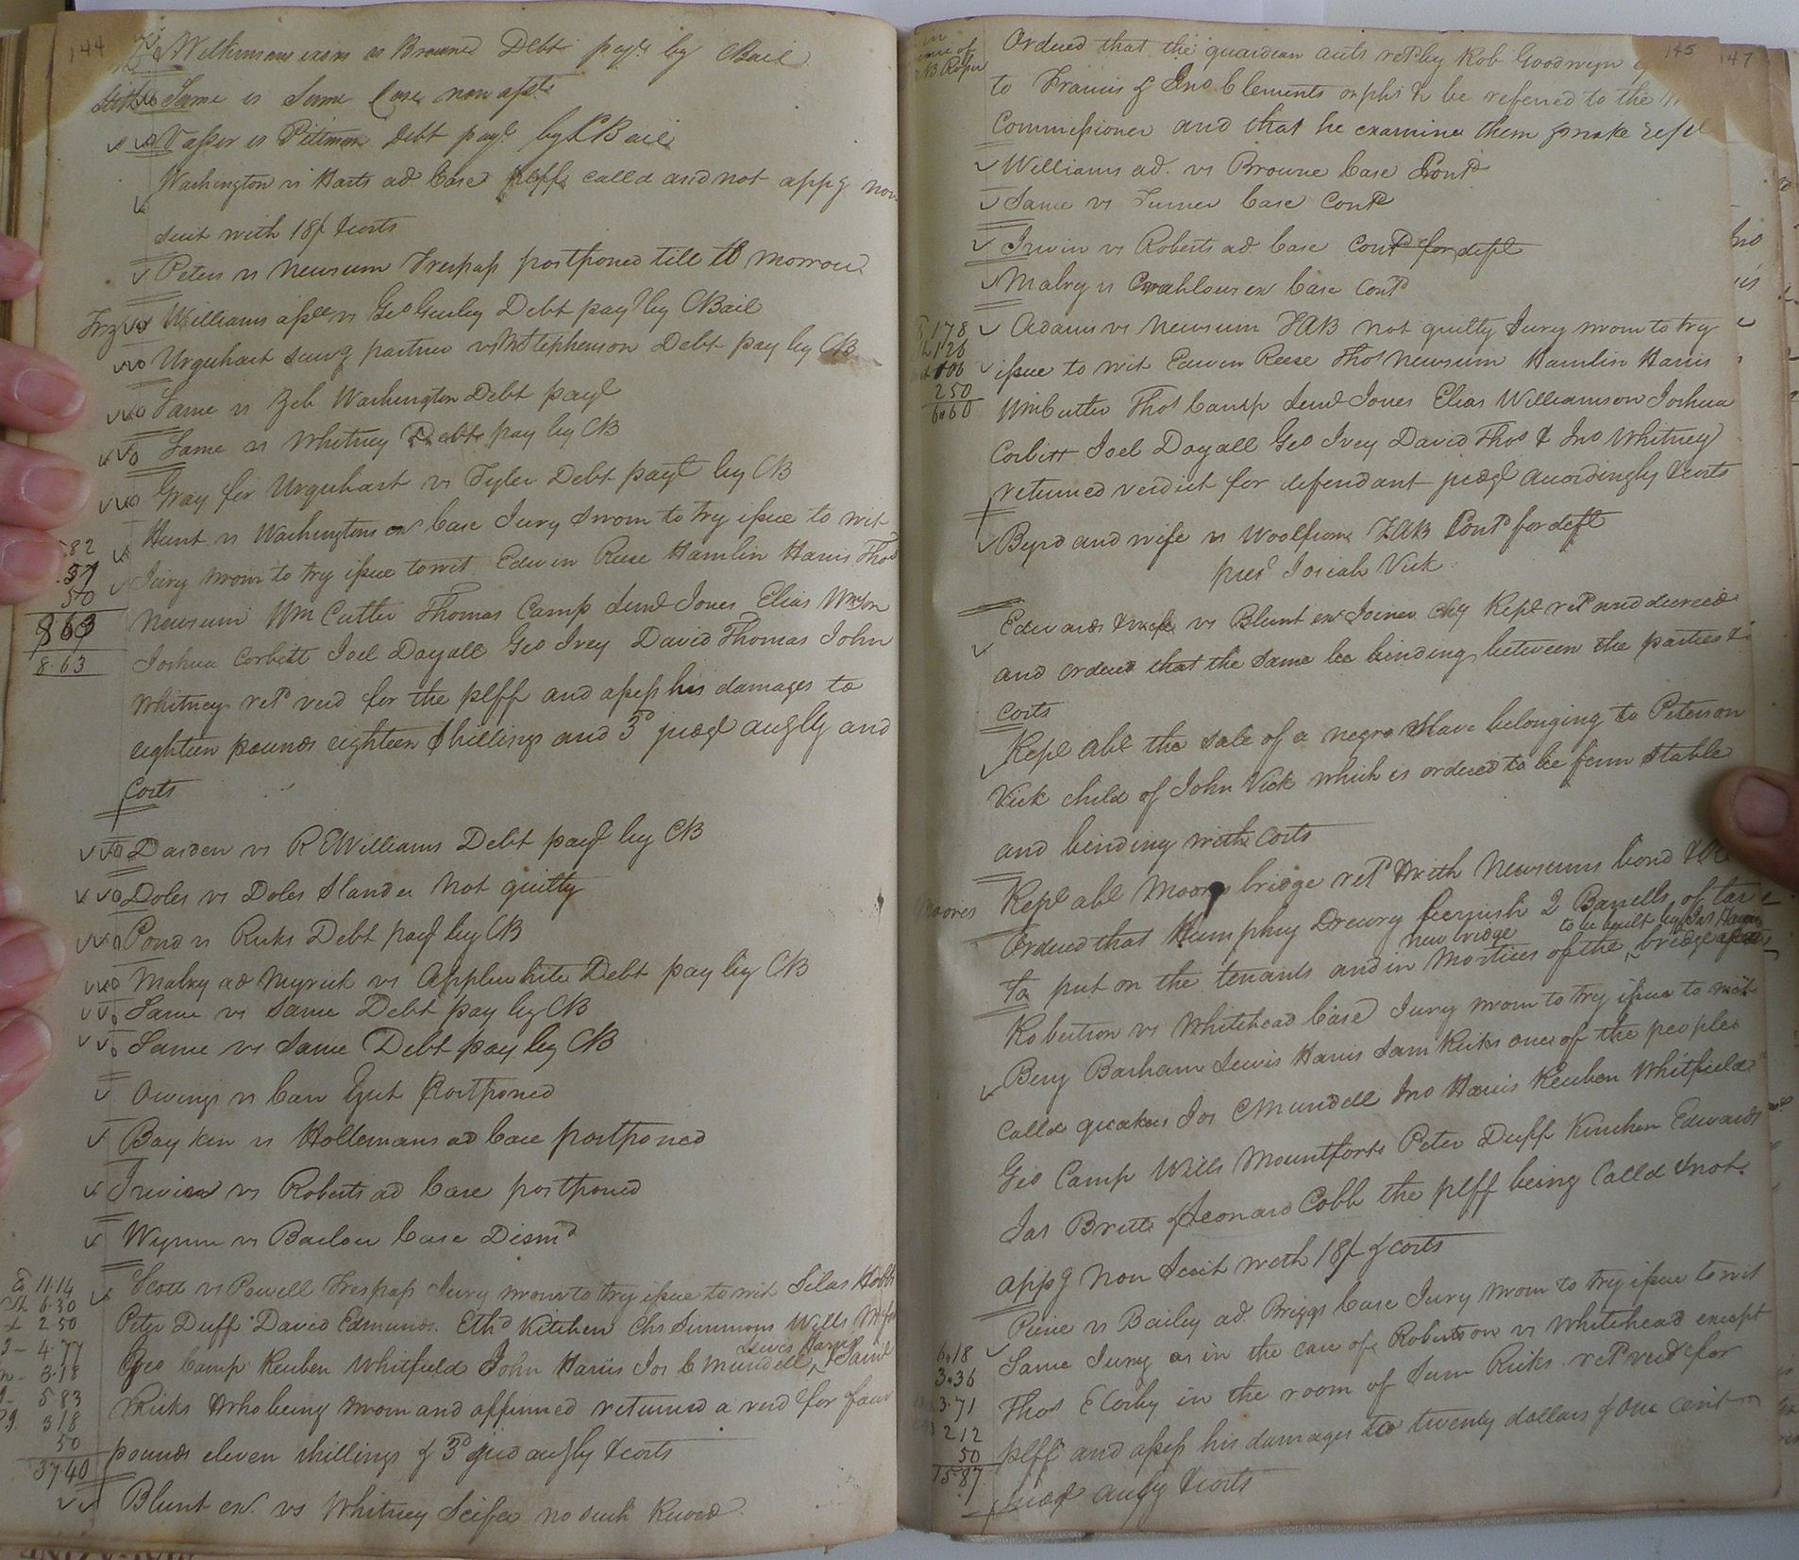 144
Wilkinsons exors vs Browne Debt payt by CBail
Same vs Same Case non apt
Vasser vs Pittman Debt payt by CBail
Washington vs Harts ad Case plff calld and not appg non
suit with 18/ & costs
Peters vs Newsum Trespass postponed till to morrow
Williams assee vs Geo Gurley Debt payt by CBail
Urquhart survg partner vs Stephenson Debt pay by CB
Same vs Zeb Washington Debt payt
Same vs Whitney Debt pay by CB
Gray for Urquhart vs Tyler Debt payt by CB
Hunt vs Washingtons exr Case Jury Sworn to try issue to wit
Jury sworn to try issue to wit Edwin Reese Hamlin Harris Thos
Newsum Wm Cutler Thomas Camp Lewd Jones Elias Wmson
Joshua Corbitt Joel Dayall Geo Ivey David Thomas John
Whitney retd verd for the plff and assess his damages to
eighteen pounds eighteen shillings and 3d judgt augly and
Costs
82
57
50
863
8.63
Darden vs R E Williams Debt payt by CB
Doles vs Doles Slander Not guilty
Pond vs Ricks Debt payt by CB
Malry ad Myrick vs Applewhite Debt pay by CB
Same vs Same Debt pay by CB
Same vs Same Debt pay by CB
Owings vs Carr Ejmt Postponed
Boykin vs Hollemans ad Case postponed
Irwin vs Roberts ad Case postponed
Wynne vs Barlow Case Dismd
Scott vs Powell Trespass Jury sworn to try issue to wit Silas
Peter Duff David Edmunds Ethd Kitchen Chs Simmons Wills
Lewis Harris
Geo Camp Reuben Whitfield John Harris Jos C Mundell
Ricks who being sworn and affirmed returned a verd for four
pounds eleven shillings & 3d & costs
11.14
6.30
2 50
4.77
3.18
5 83
318
50
3740
Blunt exr vs Whitney Scifa no such Record
145
147
Ordered that the guardian accts retd by Rob Goodwyn
to Francis & Jno Clements orphs be referred to the
Commissioner and that he examine them & make rept
Williams ad. vs Browne Case Contd
Same vs Turner Case Contd
Irwin vs Roberts ad Case Contd for deft
Malry vs Case Contd
Adams vs Newsum TAB not guilty Jury sworn to try
issue to wit Edwin Reese Thos Newsum Hamlin Harris
Wm Cutler Thos Camp Lewd Jones Elias Williamson Joshua
Corbitt Joel Dayall Geo Ivey David Thos & Jno Whitney
returned verdict for defendant judgt accordingly & costs
178
126
106
250
660
Byrd and wife vs Woolfrom TAB Contd for deft
pres Josiah Vick
Edwards & wife vs Blunt exr Joiner Chy Rept retd and decreed
and ordered that the same be binding between the parties
costs
Rept abt the sale of a negro Slave belonging to Peterson
Vick child of John Vick which is ordered to be firm Stable
and binding with costs
Moores
Rept abt Moors bridge retd with Newsums bond
Ordered that Humphrey Drewry furnish 2 Barrells of tar
new bridge to be built by Jas
to put on the tenants and in Mortices of the bridge
Robertson vs Whitehead Case Jury sworn to try issue to wit
Benj Barham Lewis Harris Sam Ricks one of the people
calld quakers Jos C Mundell Jno Harris Reuben Whitfield
Geo Camp Wills Mountfort Peter Duff Kinchen Edwards
Jas Britt & Leonard Cobb the plff being Calld & not
appg Non Suit with 18/ & costs
Pierce vs Bailey ad. Briggs Case Jury sworn to try issue to wit
Same Jury as in the case of Robertson vs Whitehead except
Thos E Corby in the room of Sam Ricks retd verd for
plff and assess his damages to twenty dollars & one cent
judgt augly & costs
6.18
3.36
3.71
212
50
15.87